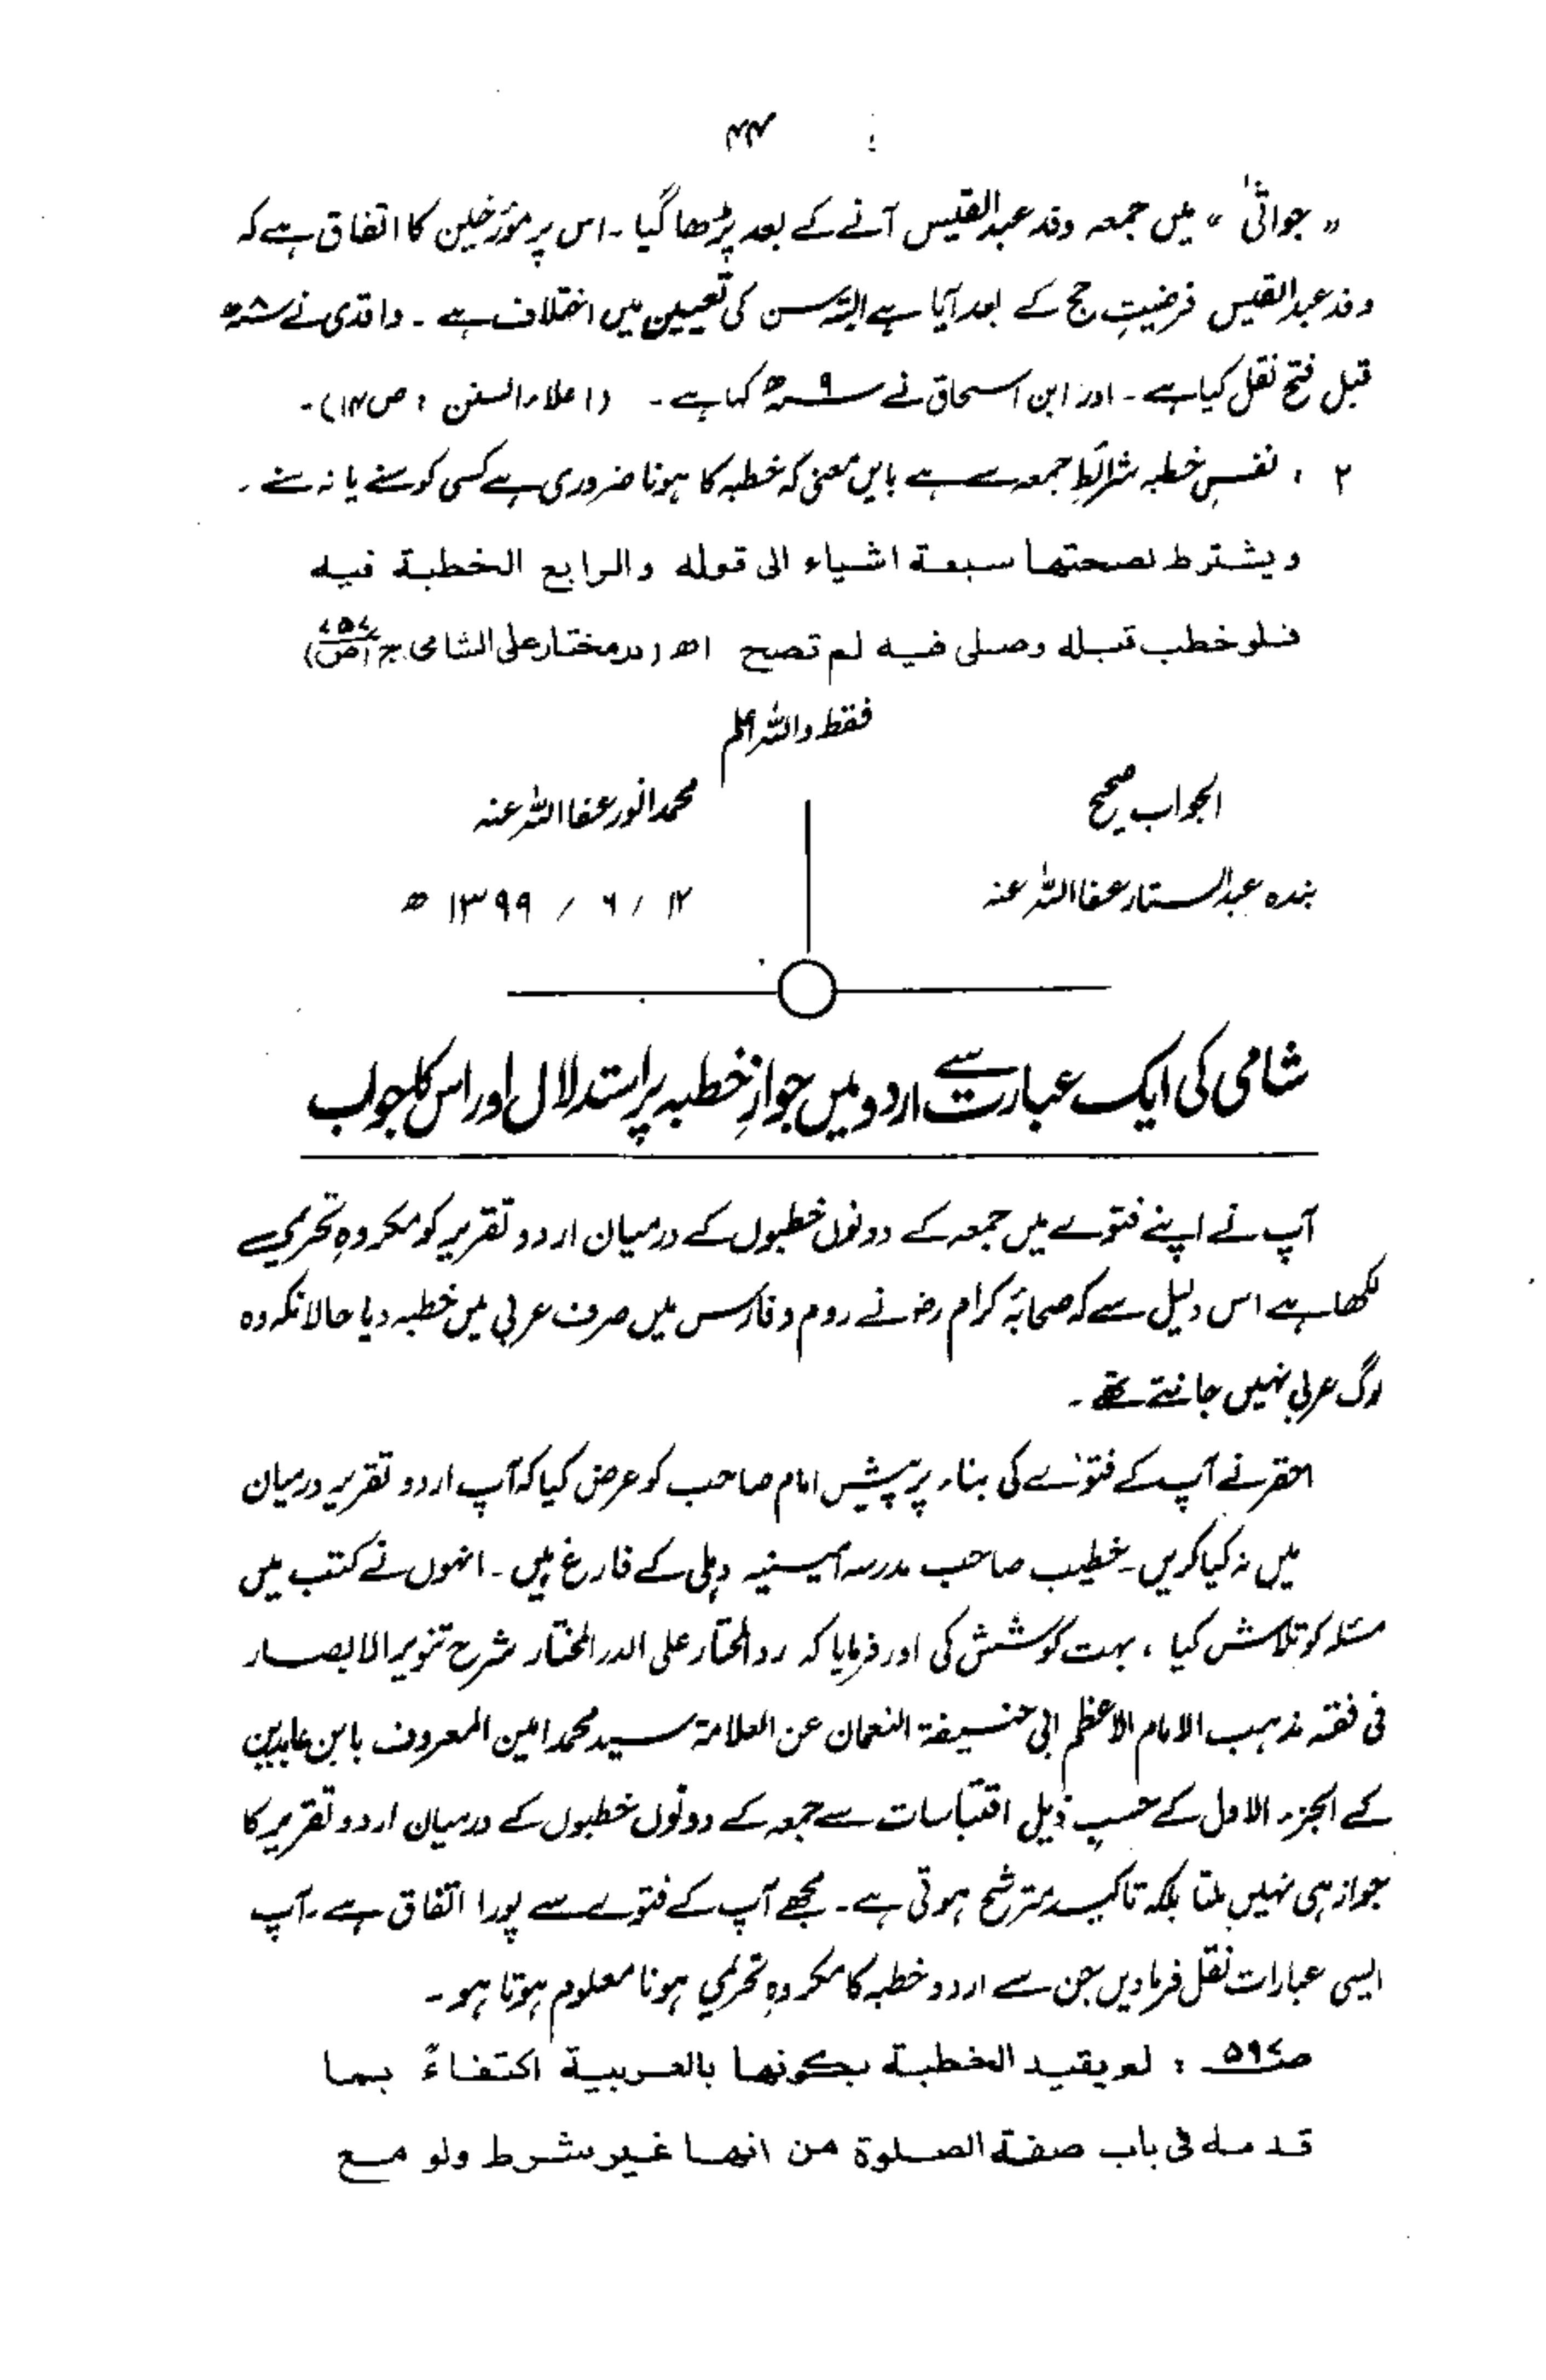 ۴۴
"جواثیٰ" میں جمعہ وفد عبدالقیس آنے کے بعد پڑھا گیا۔ اس پر مؤرخین کا اتفاق ہے کہ
وفد عبدالقیس فرضیتِ حج کے بعد آیا ہے البتہ سن کی تعیین میں اختلاف ہے۔ واقدی نے ۸ھ
قبل فتح نقل کیا ہے۔ اور ابن اسحاق نے ۹ھ کہا ہے۔ (اعلاء السنن : ص۱۴)۔
۲ : نفسِ خطبہ شرائطِ جمعہ سے ہے بایں معنی کہ خطبہ کا ہونا ضروری ہے کسی کو سنے یا نہ سنے۔
ویشترط لصحتھا سبعۃ اشیاء الی قولہ والرابع الخطبۃ فیہ
فلو خطب قبلہ وصلی فیہ لم تصح اھ (در مختار علی الشامی ج۱ ص۷۵۷)
فقط واللہ اعلم
الجواب صحیح
بندہ عبدالستار عفا اللہ عنہ
محمد انور عفا اللہ عنہ
۱۲ / ۶ / ۱۳۹۹ ھ
شامی کی ایک عبارت سے اردو میں جوازِ خطبہ پر استدلال اور اس کا جواب
آپ نے اپنے فتوے میں جمعہ کے دونوں خطبوں کے درمیان اردو تقریر کو مکروہِ تحریمی
لکھا ہے اس دلیل سے کہ صحابۂ کرام رضؓ نے روم و فارس میں صرف عربی میں خطبہ دیا حالانکہ وہ
لوگ عربی نہیں جانتے تھے۔
احقر نے آپ کے فتوے کی بناء پر پیش امام صاحب کو عرض کیا کہ آپ اردو تقریر درمیان
میں نہ کیا کریں۔ خطیب صاحب مدرسہ امینیہ دہلی کے فارغ ہیں۔ انہوں نے کتب میں
مسئلہ کو تلاش کیا ، بہت کوشش کی اور فرمایا کہ ردالمحتار علی الدر المختار شرح تنویر الابصار
فی فقہ مذہب الامام الاعظم ابی حنیفۃ النعمان عن العلامۃ سید محمد امین المعروف بابن عابدین
کے الجزء الاول کے حسبِ ذیل اقتباسات سے جمعہ کے دونوں خطبوں کے درمیان اردو تقریر کا
جواز ہی نہیں ملتا بلکہ تاکید مترشح ہوتی ہے۔ مجھے آپ کے فتوے سے پورا اتفاق ہے۔ آپ
ایسی عبارات نقل فرما دیں جن سے اردو خطبہ کا مکروہِ تحریمی ہونا معلوم ہوتا ہو۔
ص۵۹۷ : لم یقید الخطبۃ بکونھا بالعربیۃ اکتفاءً بما
قدمہ فی باب صفۃ الصلوۃ من انھا غیر شرط ولو مع